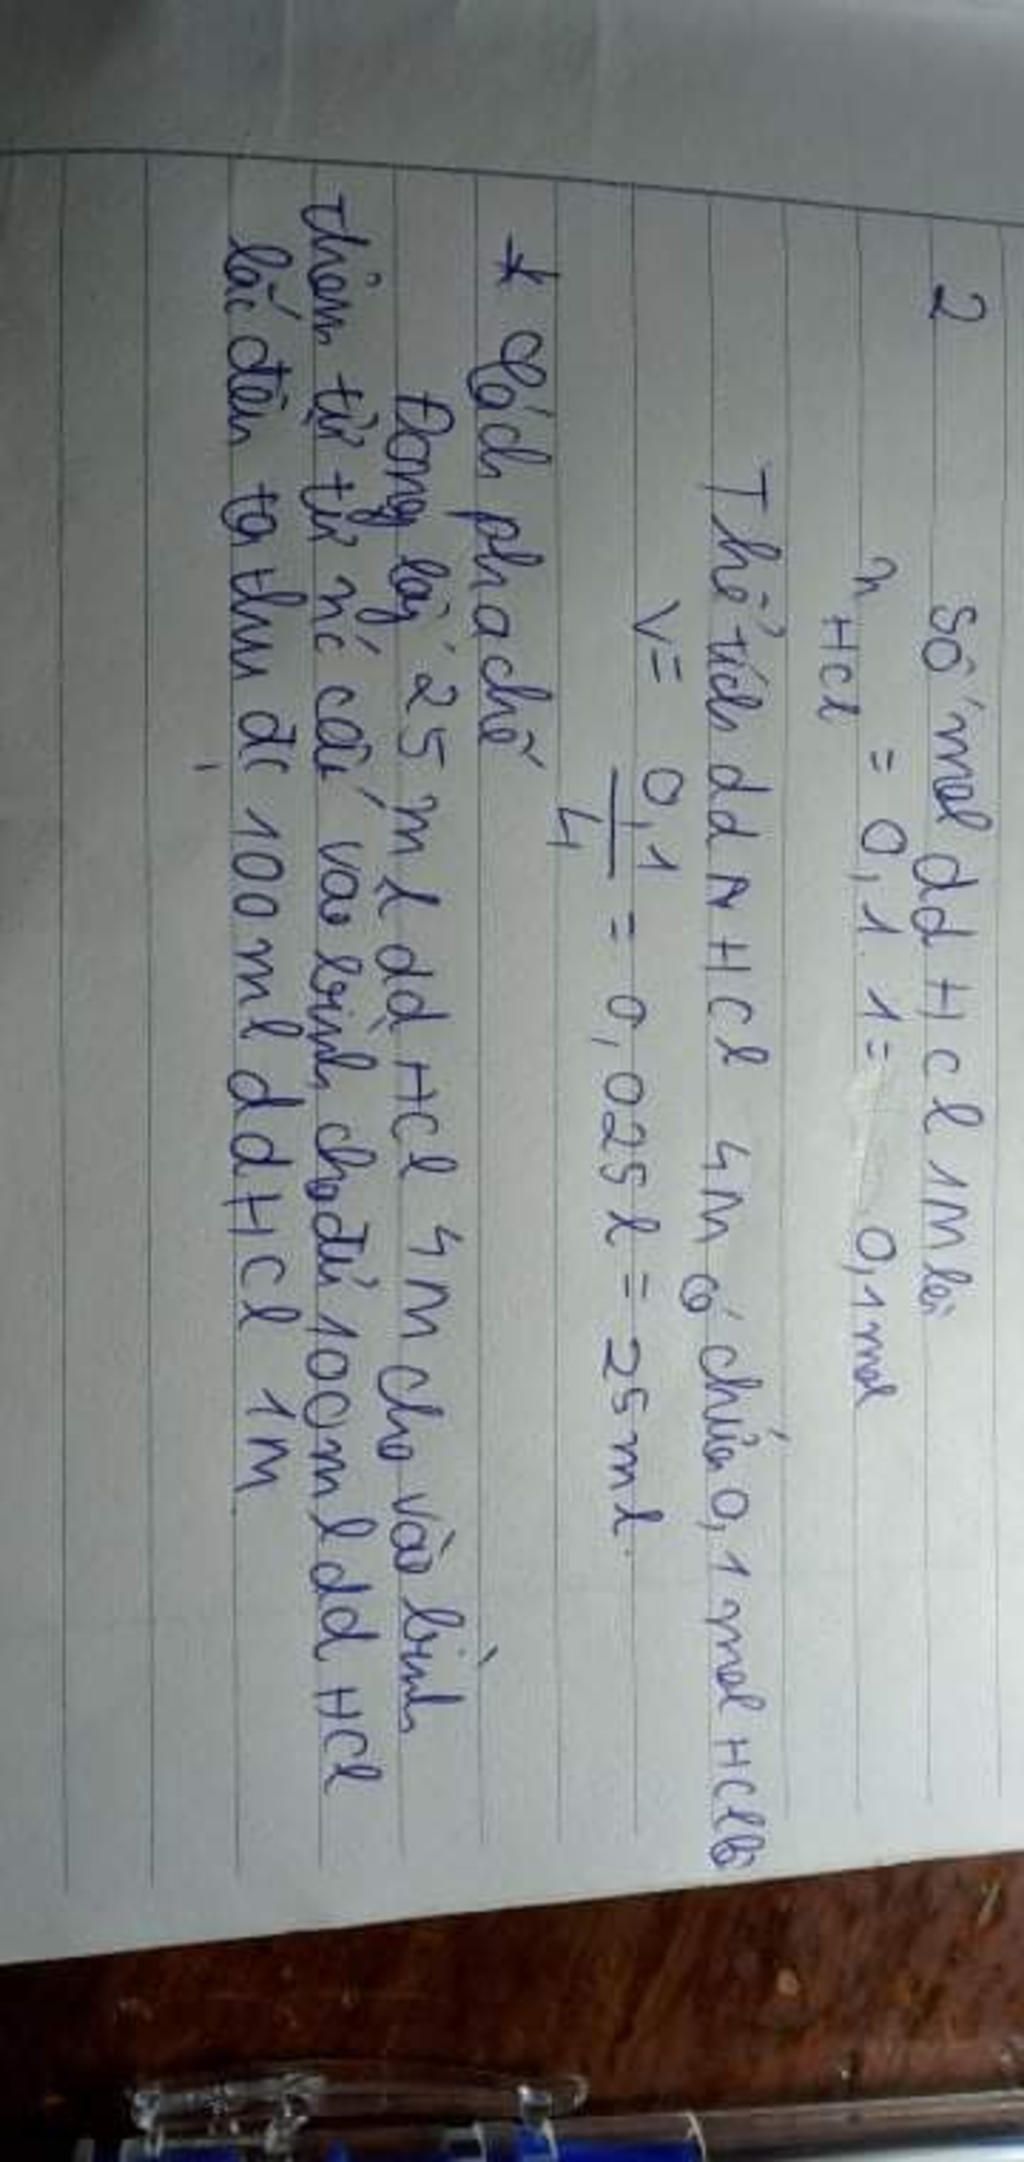 2 Số mol dd HCl 1M là
nHCl = 0,1 . 1 = 0,1 mol
Thể tích dd HCl 4M có chứa 0,1 mol HCl là
V = 0,1/4 = 0,025 l = 25 ml.
* Cách pha chế
Đong lấy 25 ml dd HCl 4M cho vào bình
thêm từ từ nc cất vào bình cho đủ 100 ml dd HCl
lắc đều ta thu đc 100 ml dd HCl 1M